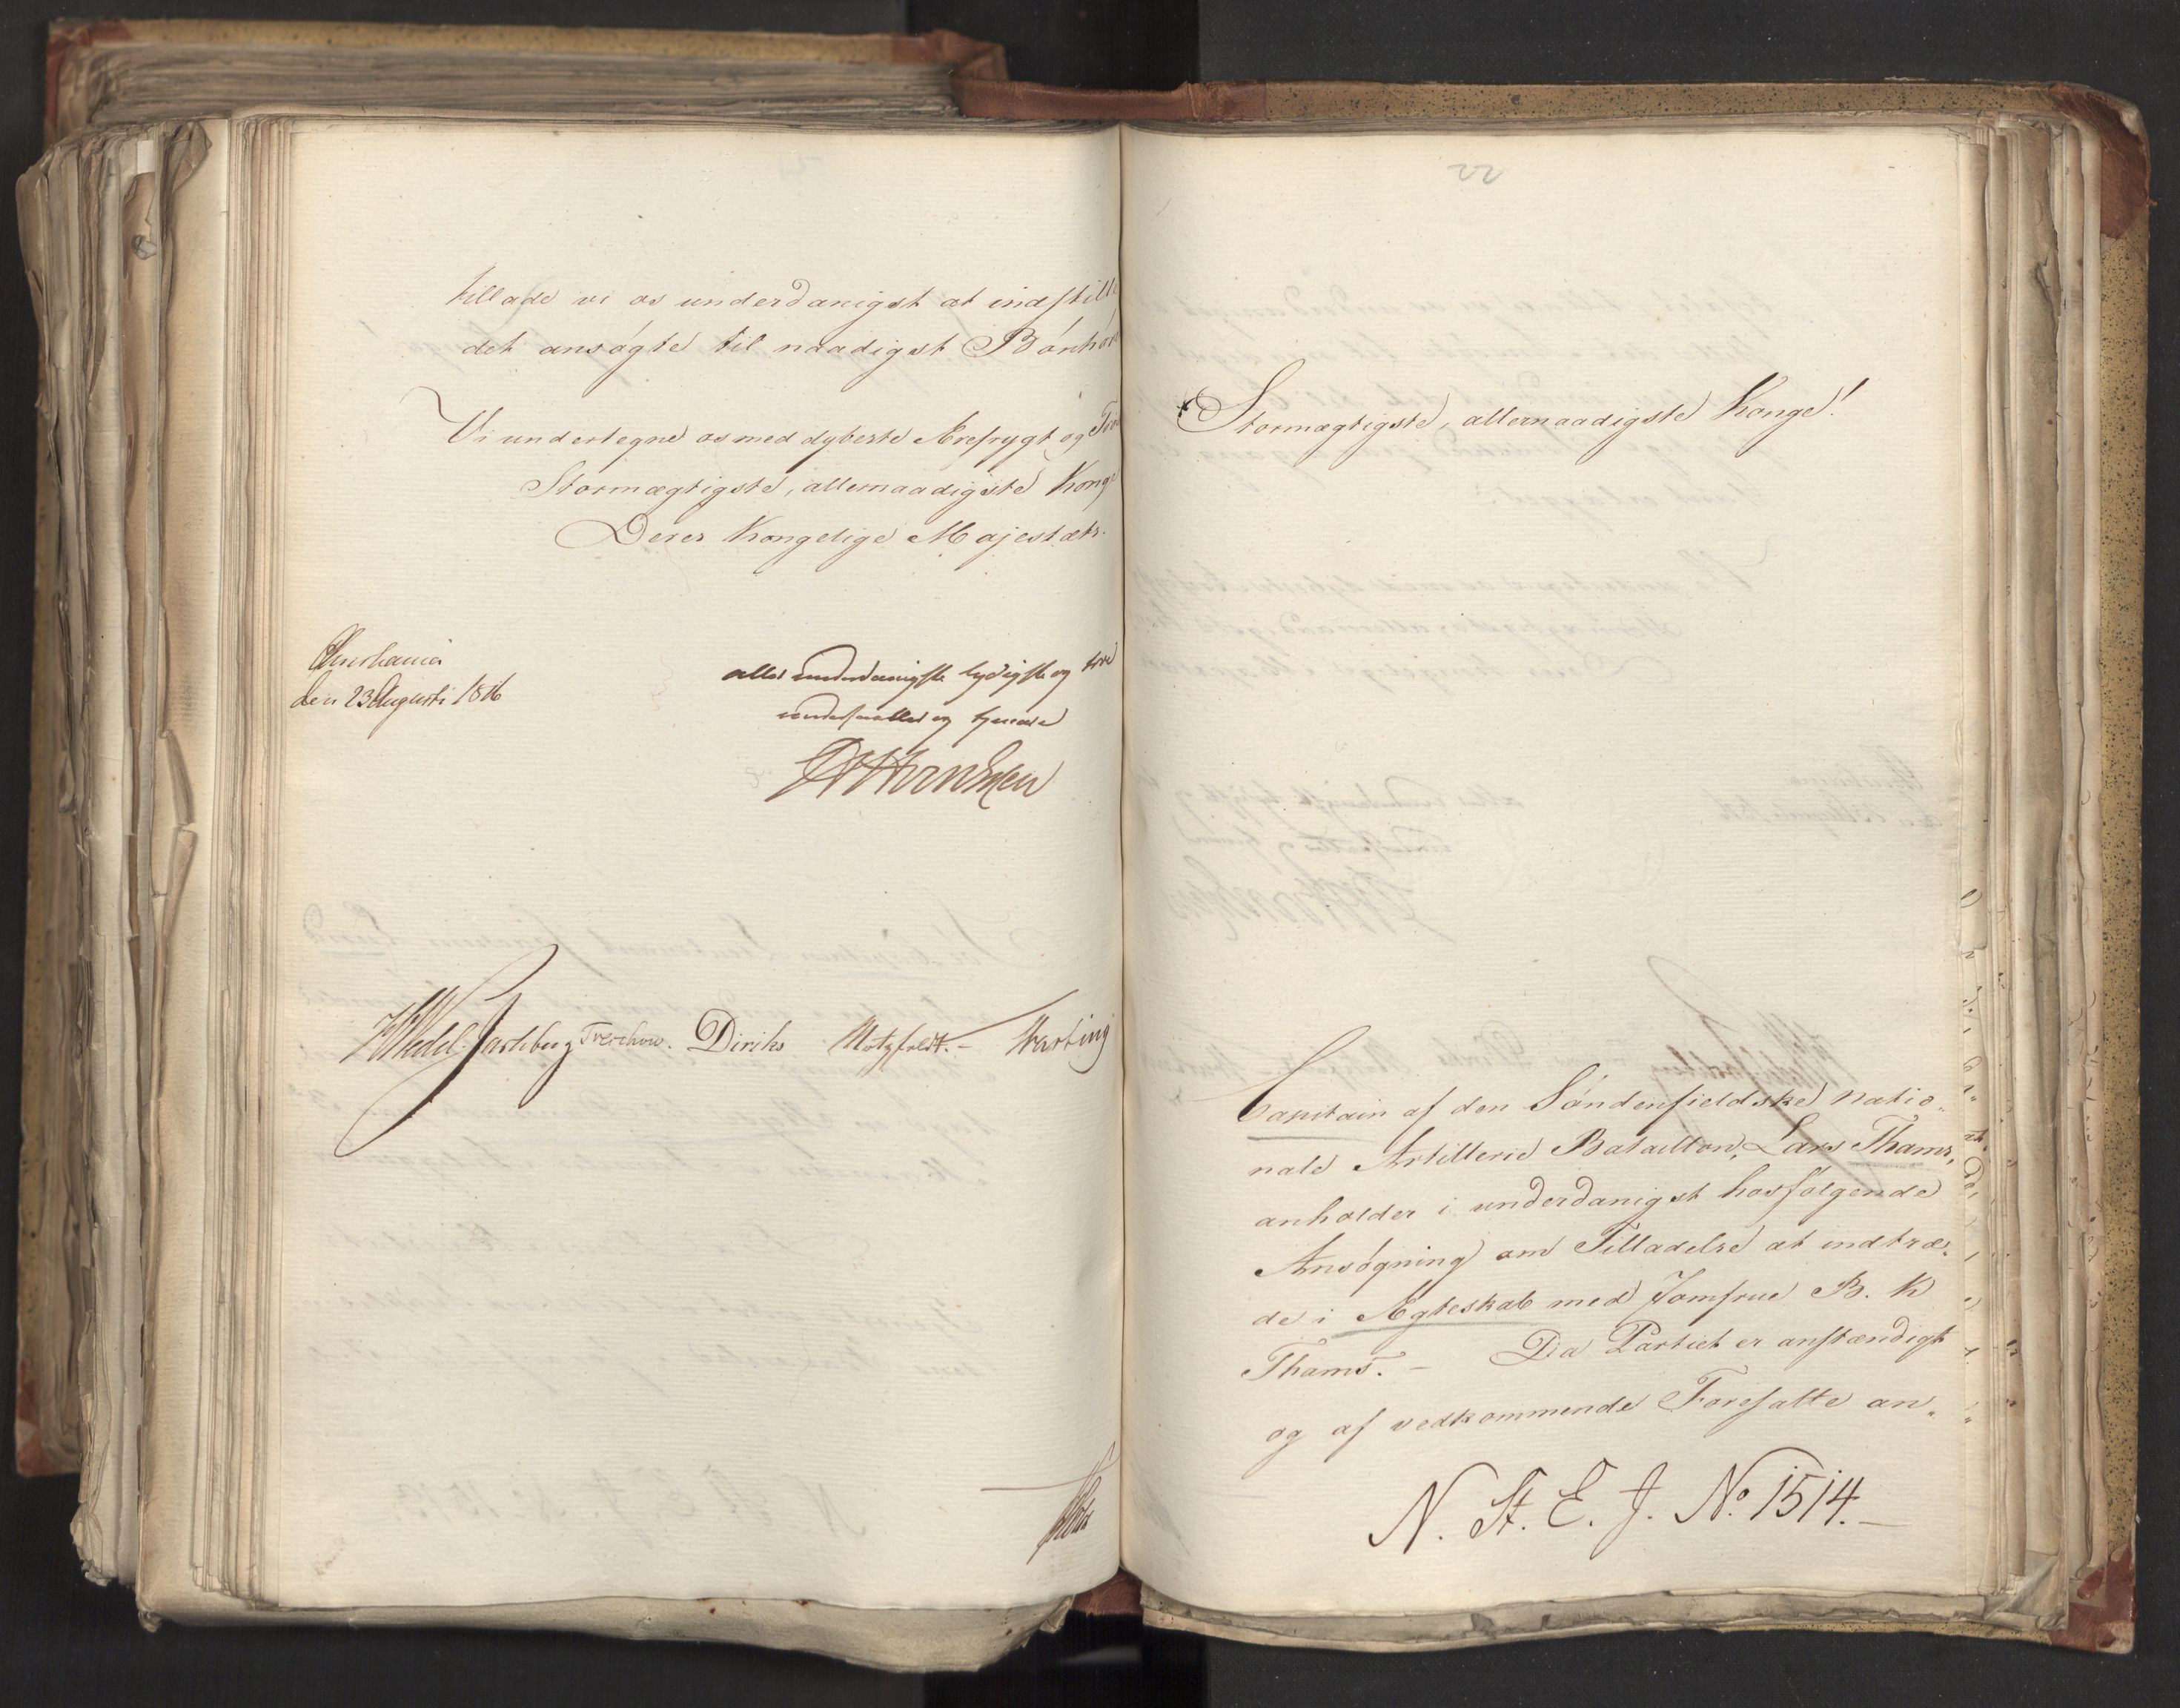 tillade vi os underdanigst at indstille
det ansøgte til naadigst Bønhør
Vi undertegne os med dybeste Ærefrygt og Tro
Stormægtigste, allernaadigste Konge
Deres Kongelige Majestæts.
Christiania
den 23 Augusti 1816
aller underdanigste lydigste og troe
undersaatter og tjenere
HWedel-Jarlsberg Treschow. Diriks Motzfeldt. - Krebting
22
Stormægtigste, allernaadigste Konge!
Capitain af den Søndenfieldske natio„
nale Artillerie Bataillon, Lars Thams,
anholder i underdanigst hosfølgende
Ansøgning om Tilladelse at indtræ„
de i Ægteskab med Jomfrue B. K
Thams. - Da Partiet er anstændigt
og af vedkommende Foresatte an„
N. St. E. J. No. 1514. -